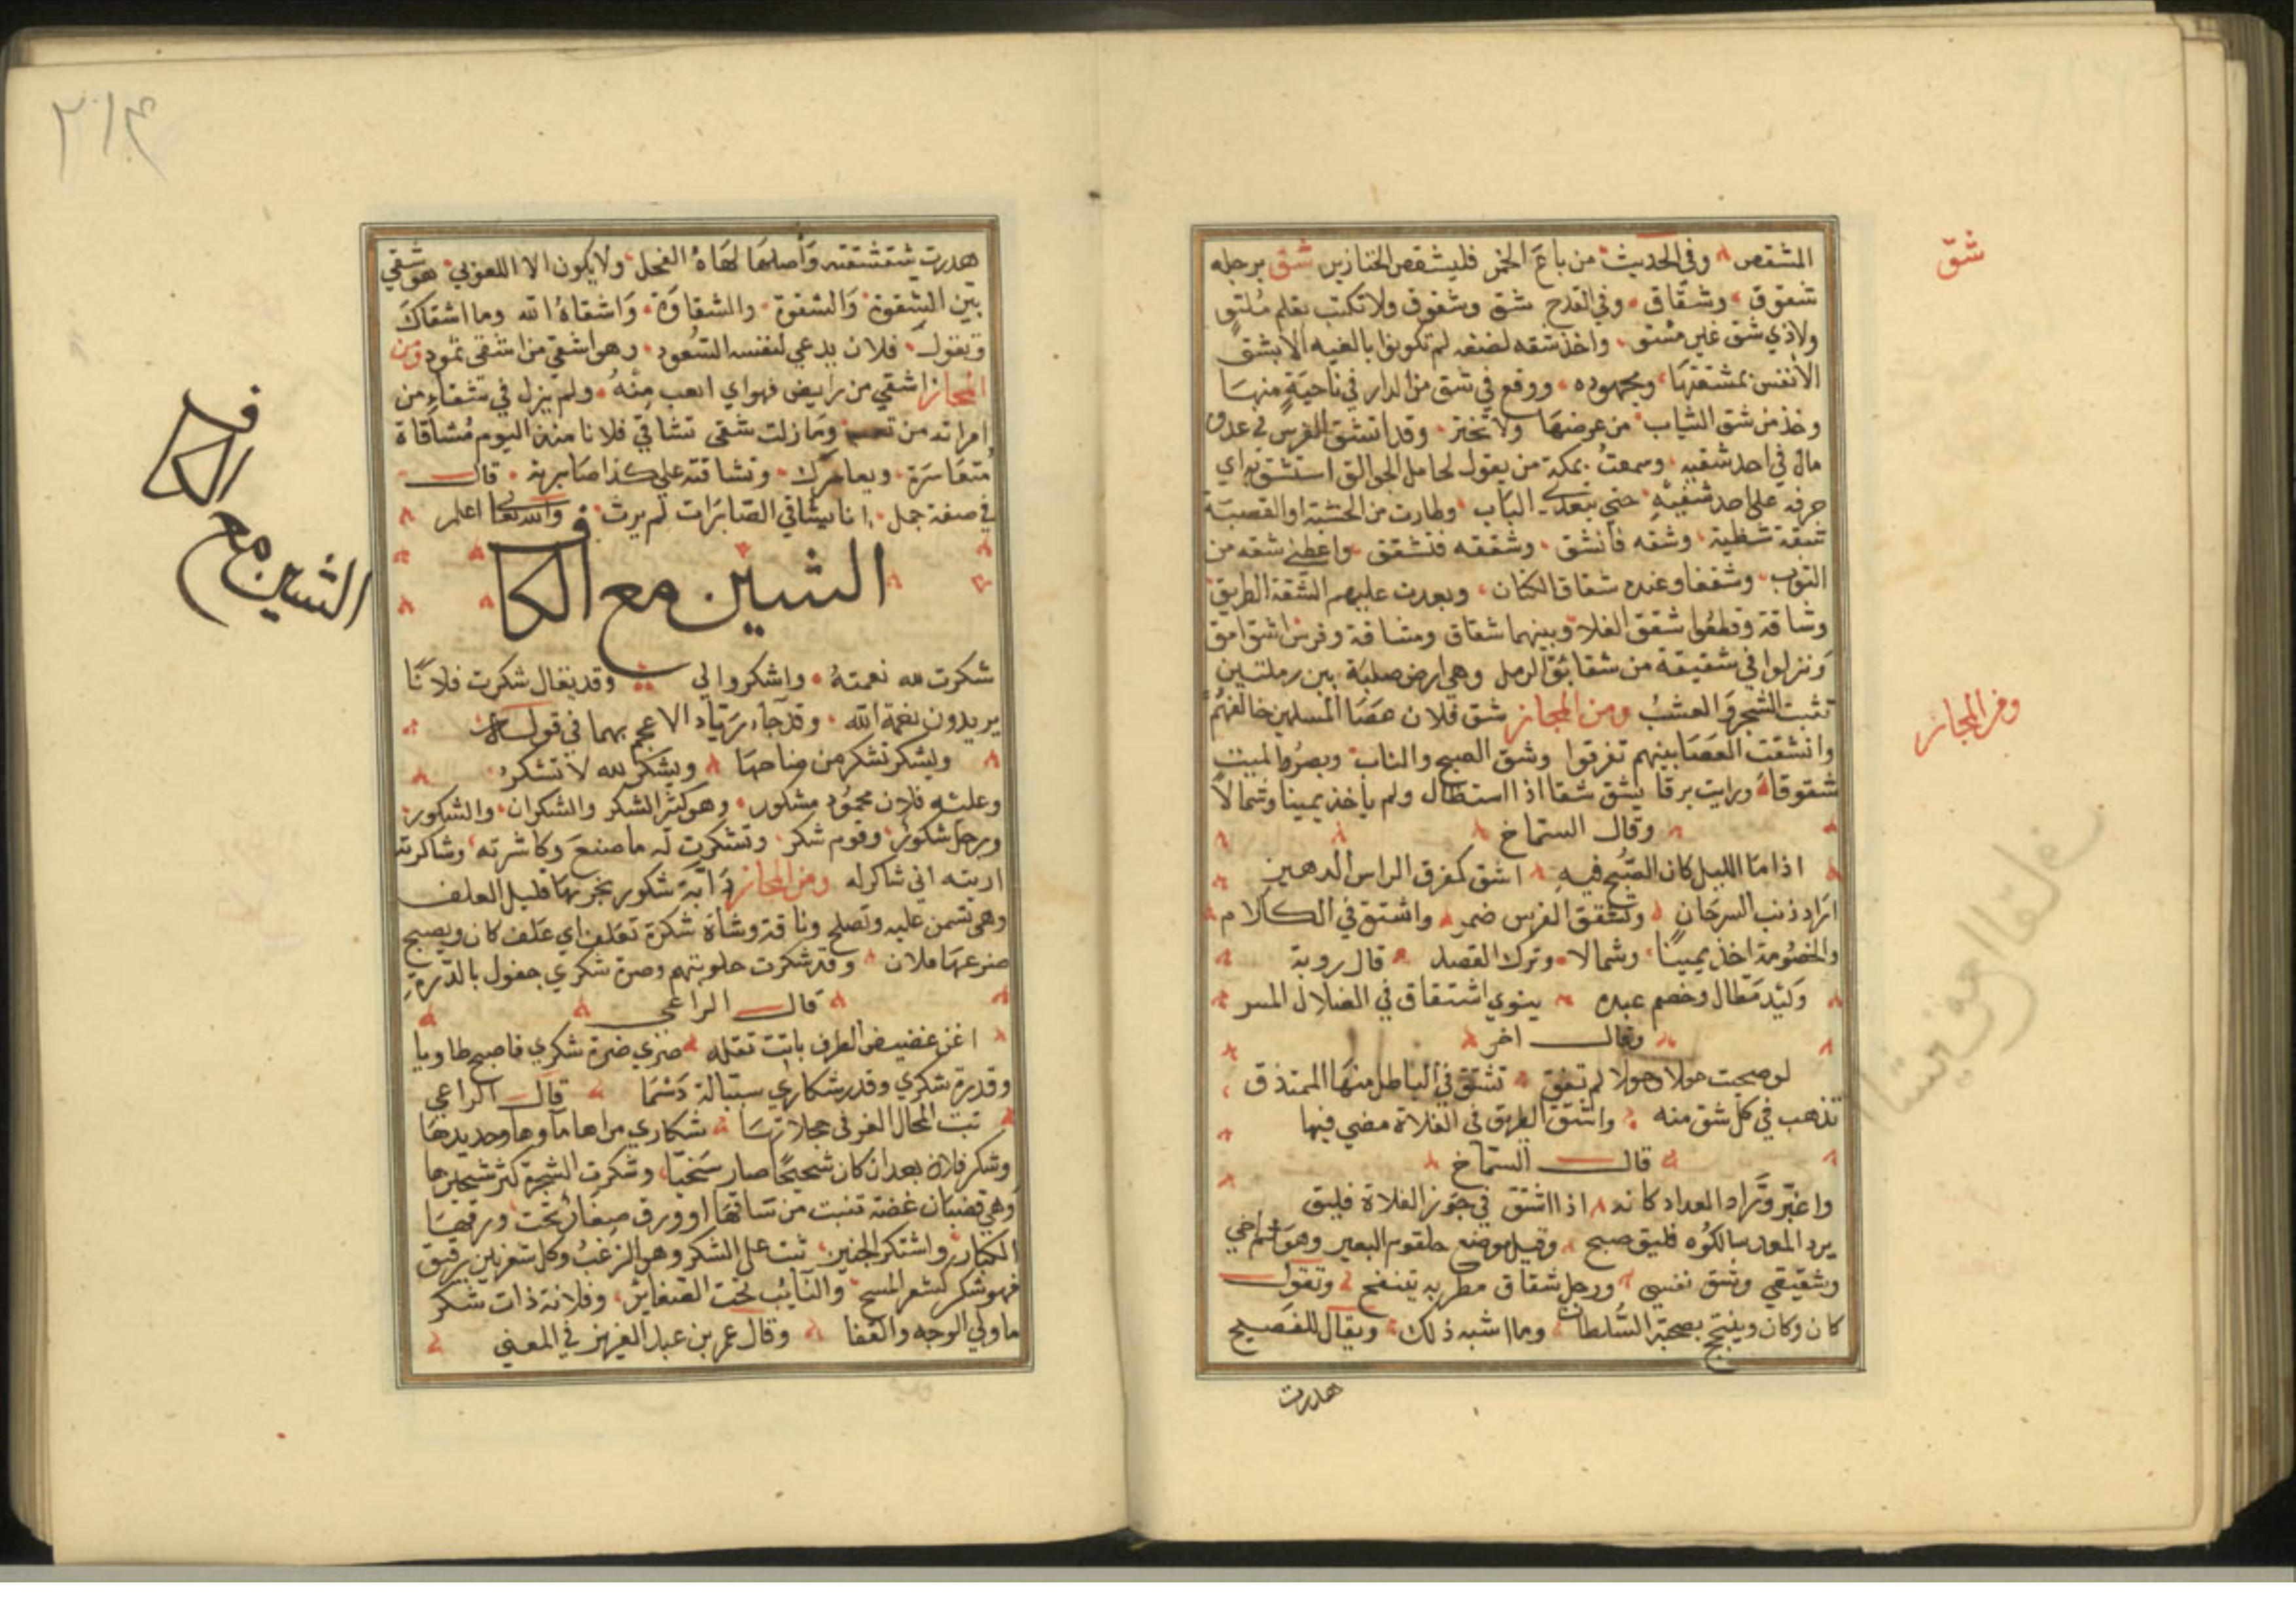 شق
المشقص وفي الحديث من باع الخمر فليشقص الخنازير شق برجله
شقوق وشقاق وفي القدح شق وشقوق ولا تكتب بقلم ملتو
ولا ذي شق غير مستو واخذ شقه لصنفه لم تكونوا بالغيه الا بشق
الأنفس بمشقتها ومجهوده ووقع في شق من الدار في ناحية منها
وخذ من شق الثياب من عرضها ولا تختر وقد اتشق الفرس في عدوه
مال في احد شقيه وسمعت بمكة من يقول لحامل الجوالق استشق به اي
حرفه على احد شقيه حتى يتعدى الباب وطارت من الخشبة او القصبة
شقة شظية وشقه فانشق وشققه فتشقق واعطني شقه من
الثوب وشققا وعنده شقاق الكتان وبعدت عليهم الشقة الطريق
وشاقة وقطعوا شقق الفلا وبينهما شقاق ومشاقة وفرس اشق امق
ونزلوا في شقيقة من شقائق الرمل وهي ارض صلبة بين رملتين
تنبت الشجر والعشب ومن المجاز شق فلان عصا المسلمين خالفهم
ومن المجاز
وانشقت العصا بينهم تفرقوا وشق الصبح والناب وبصر الميت
شقوقا ورايت برقا يشق شقا اذا استطال ولم يأخذ يمينا وشمالا
وقال الشماخ
اذا ما الليل كان الصبح فيه اشق كمفرق الراس الدهين
اراد ذنب السرحان وتشقق الفرس ضمر واشتق في الكلام
والخصومة اخذ يمينا وشمالا وترك القصد قال روبة
وكيد مطال وخصم عبده ينوي اشتقاق في الضلال المسر
وقال اخر
لو صحبت حولا وحولا لم تفق تشتق في الباطل منها الممتذق
تذهب في كل شق منه واشتق الطريق في الفلاة مضى فيها
قال الشماخ
واغبر وراد العداد كانه اذا اشتق في جوز الفلاة فليق
يرد المعد سالكوه فليق صبح وقيل موضع حلقوم البعير وهو شق اخي
وشقيقي وشق نفسي ورجل شقاق مطربه يتنفج وتقول
كان وكان وينتج بصحبة السلطان وما اشبه ذلك ويقال للفصيح
هدرت
٢١٣
هدرت شقشقته وأصلها لهاة الفحل ولا يكون الا للعربي هو شقي
بين الشقوة والشقوة والشقاوة واشقاه الله وما اشقاك
وتقول فلان يدعي لنفسه السعود وهو اشقى من اشقى ثمود ومن
المجاز اشقى من رايض فهو اي اتعب منه ولم يزل في شقاء من
امراته من وما زلت شقي تشاقي فلانا منذ اليوم مشاقاة
متعاسرة ويعاسرك وتشاقته على كذا صابرته قال
في صفة جمل اذا يشاقي الصابرات لم يرث والله تعالى اعلم
الشين مع الكاف
الشين مع الكاف
شكرت لله نعمته واشكروا لي وقد يقال شكرت فلانا
يريدون نعمة الله وقد جاء زياد الاعجم بهما في قوله
ويشكر تشكر من ضاحها ويشكر لله لا تشكر
وعليه فلان محمود مشكور وهو كثير الشكر والشكران والشكور
ورجل شكور وقوم شكر وتشكرت له ما صنع وكاشرته وشاكرته
اريته اني شاكر له ومن المجاز دابة شكور يجزيها قليل العلف
وهي تسمن عليه وتصلح وناقة وشاة شكرة تعتلف اي علف كان ويصبح
ضرعها ملان وقد شكرت حلوبتهم وضرة شكري حفول بالدرة
قال الراعي
اغن غضيض الطرف باتت تعله صري ضرة شكري فاصبح طاويا
وقدرة شكري وقدر شكاري سبالة دسما قال الراعي
تبت المحال الغر في حجراتها شكاري مراها ماوها وحديدها
وشكر فلان بعد ان كان شحيحا صار سخيا وشكرت الشجرة كثر شكيرها
وهي قضبان غضة تنبت من ساقها او ورق صغار تحت ورقها
الكبار واشتكر الجنين نبت على الشكر وهو الزغب وكل شعر لين رقيق
فهو شكر كشعر المسح والنايب تحت الضفاير وفلانة ذات شكر
ما ولي الوجه والقفا وقال عمر بن عبد العزيز في المعنى